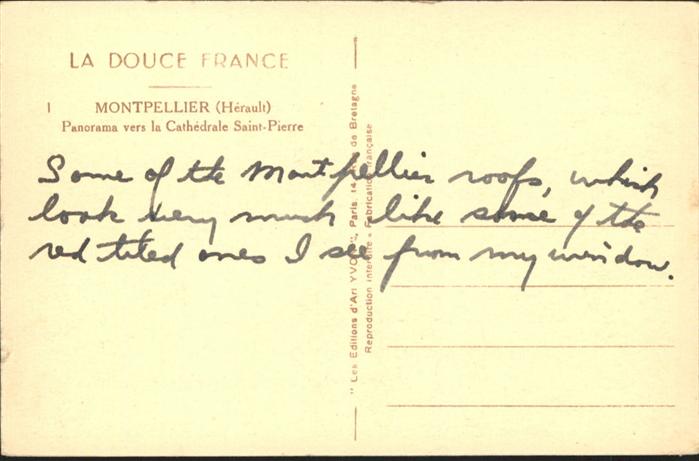 LA DOUCE FRANCE
1 MONTPELLIER (Hérault)
Panorama vers la Cathédrale Saint-Pierre
Some of the Montpellier roofs, which
look very much like some of the
red tiled ones I see from my window.
" Les Editions d'Art YVON ", Paris, 14 de Bretagne
Reproduction Interdite - Fabrication Française